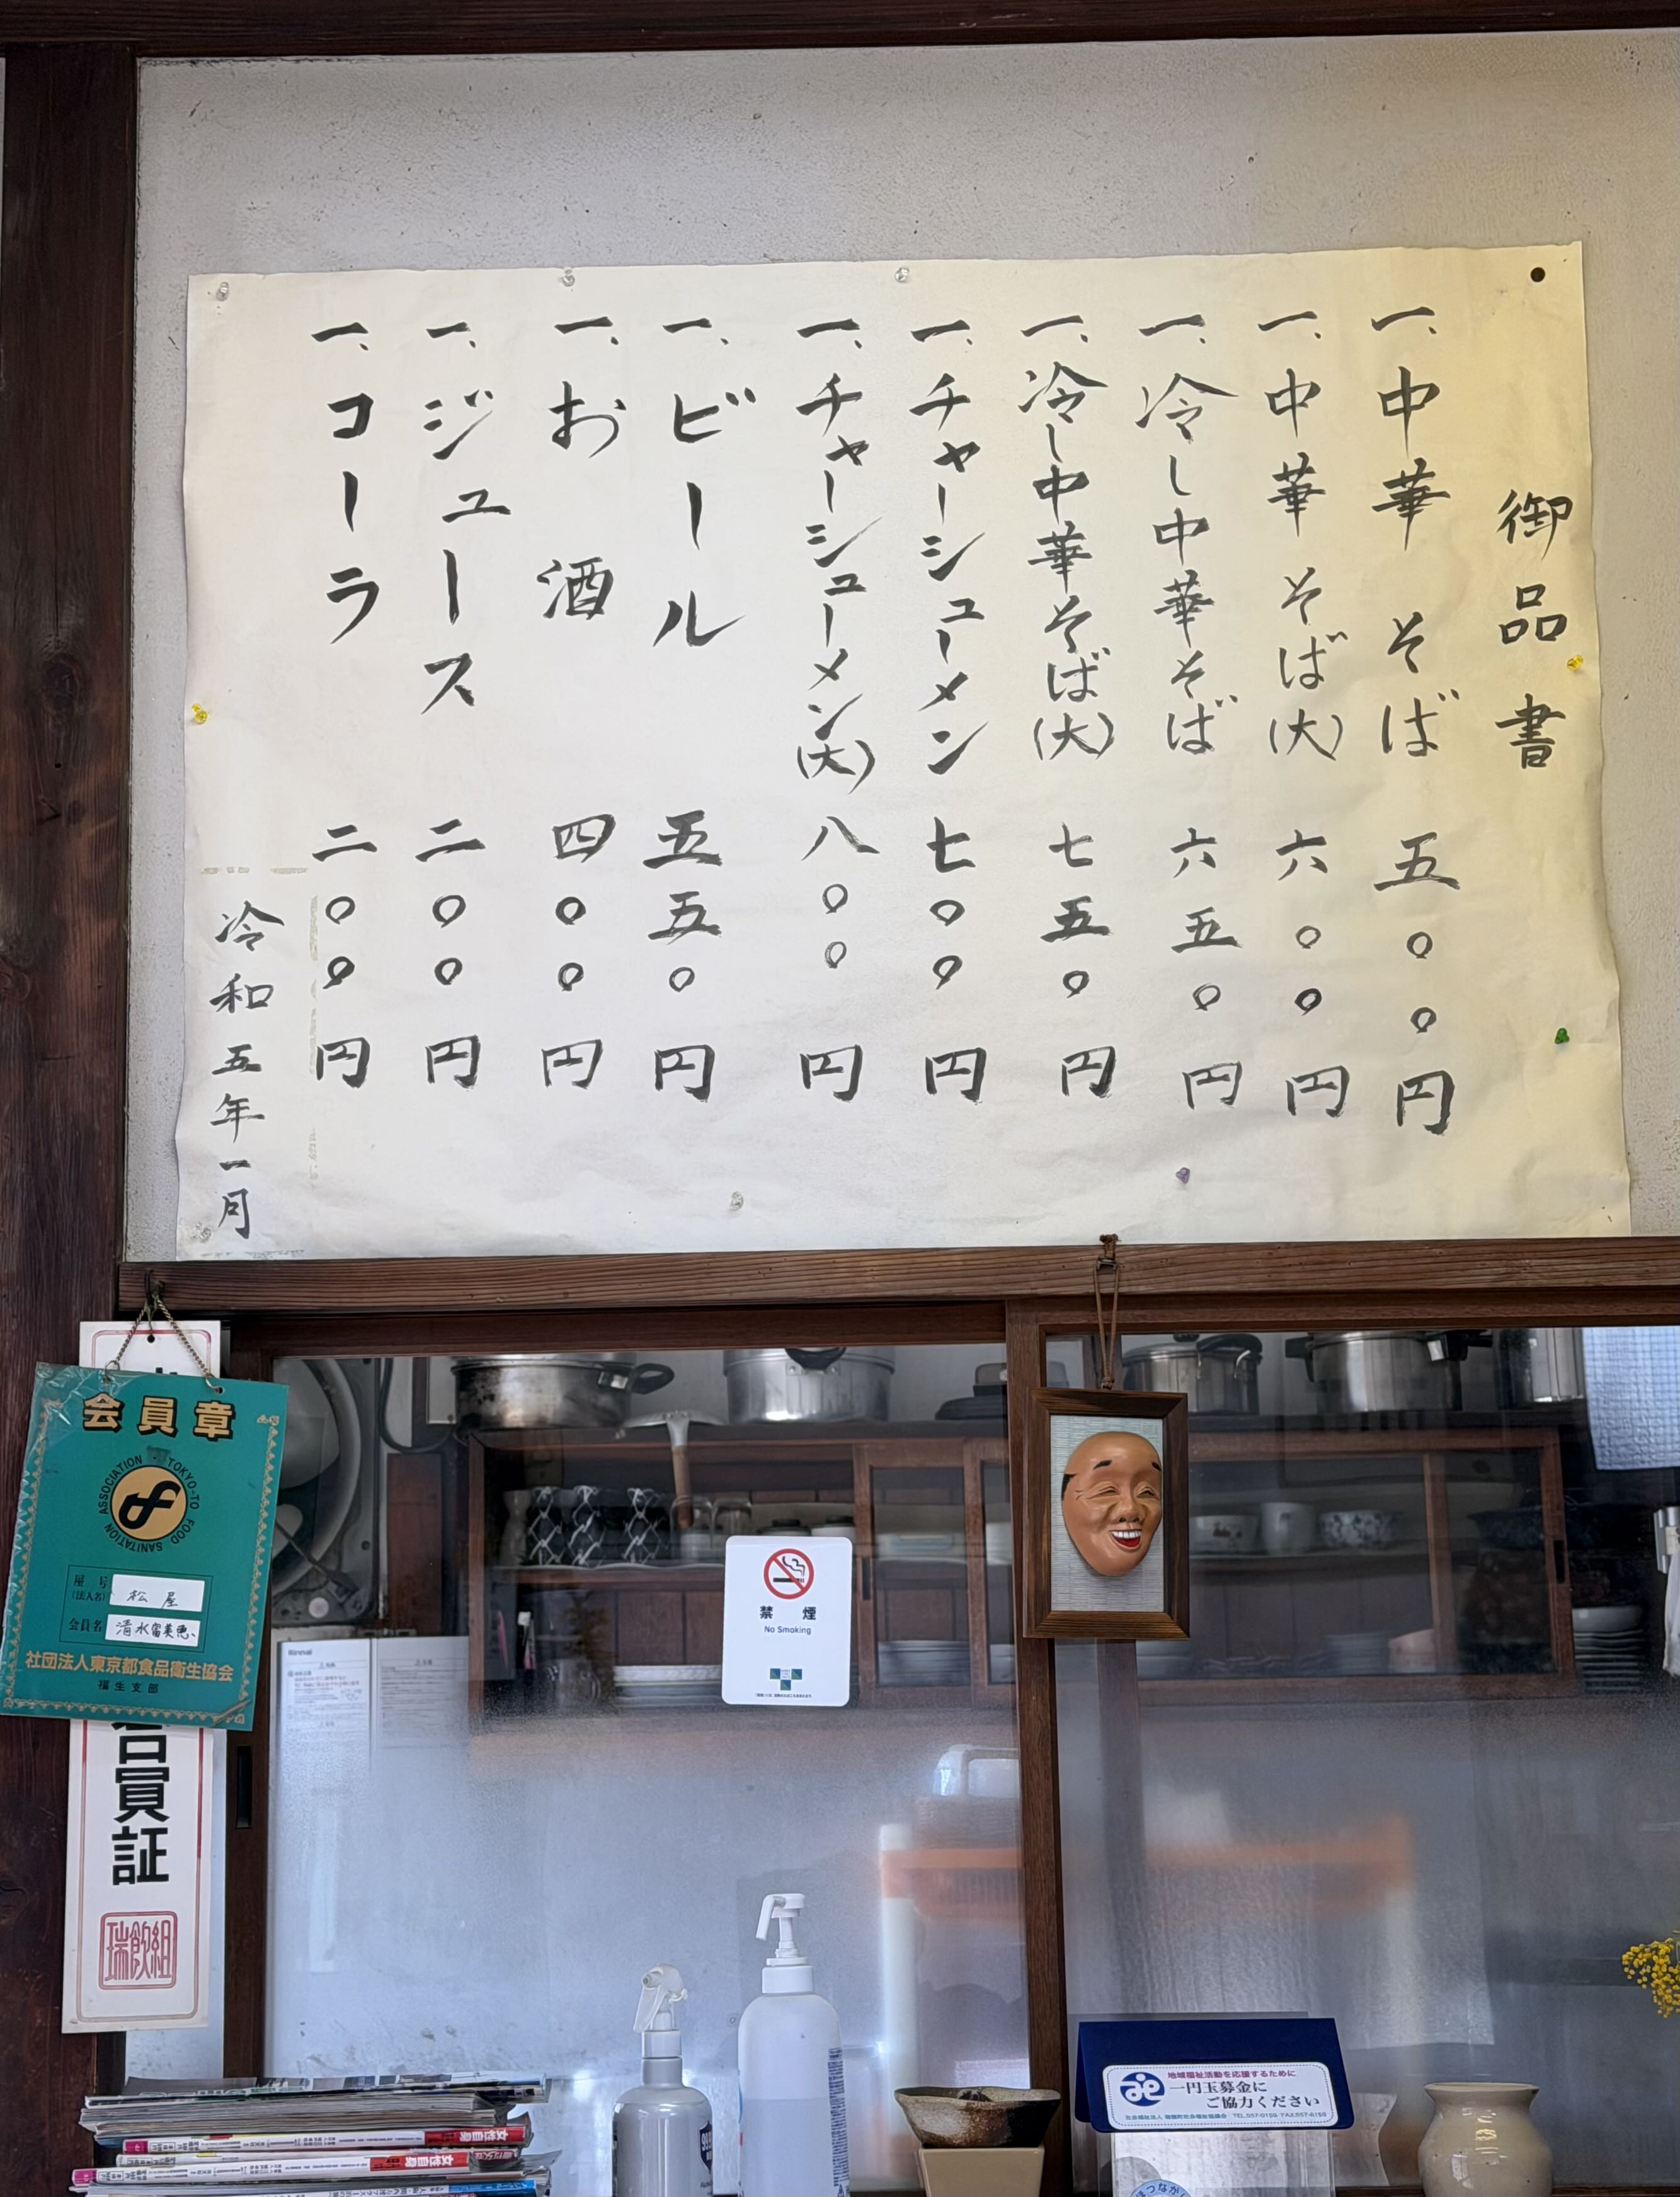 御品書
一、中華そば 五〇〇円
一、中華そば(大) 六〇〇円
一、冷し中華そば 六五〇円
一、冷し中華そば(大) 七五〇円
一、チャーシューメン 七〇〇円
一、チャーシューメン(大) 八〇〇円
一、ビール 五五〇円
一、お酒 四〇〇円
一、ジュース 二〇〇円
一、コーラ 二〇〇円
令和五年一月
会員章
TOKYO-TO FOOD SANITATION ASSOCIATION
屋号
(法人名)
松屋
会員名
清水留美恵
社団法人東京都食品衛生協会
福生支部
員証
瑞飲組
Rinnai
禁煙
No Smoking
地域福祉活動を応援するために
一円玉募金に
ご協力ください
女性自身
女性自身